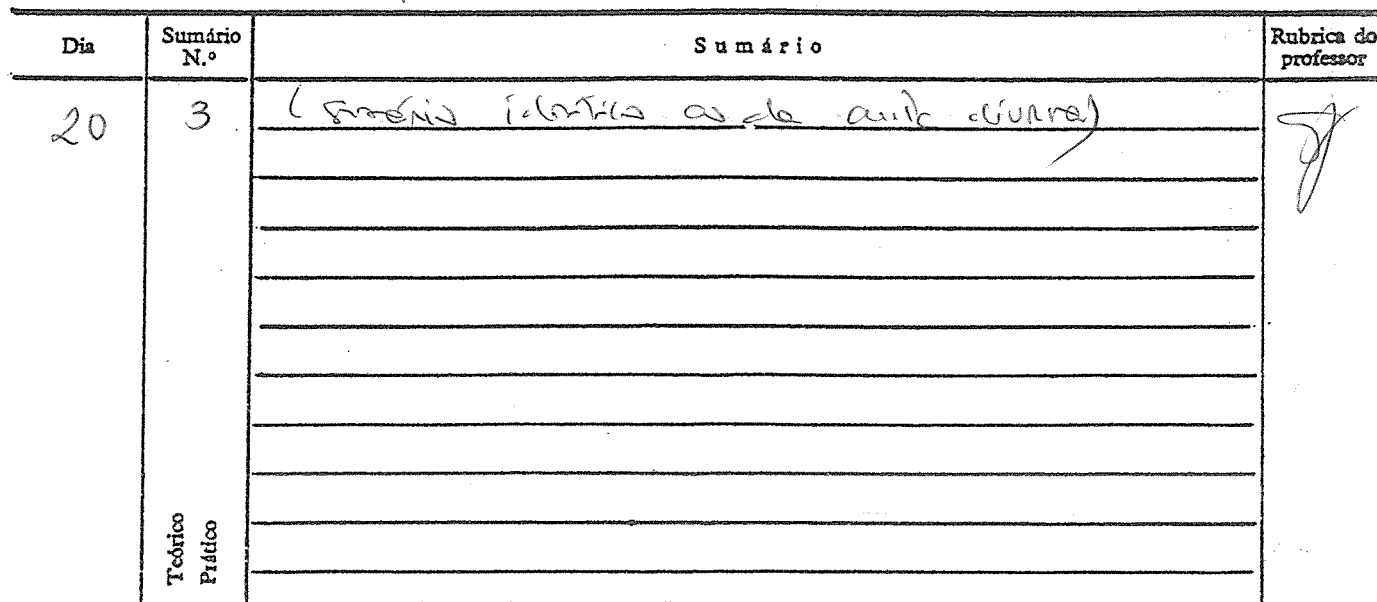 Dia
Sumário N.º
Sumário
Rubrica do professor
20
3
(sumário idêntico ao da aula diurna)
Teórico
Prático